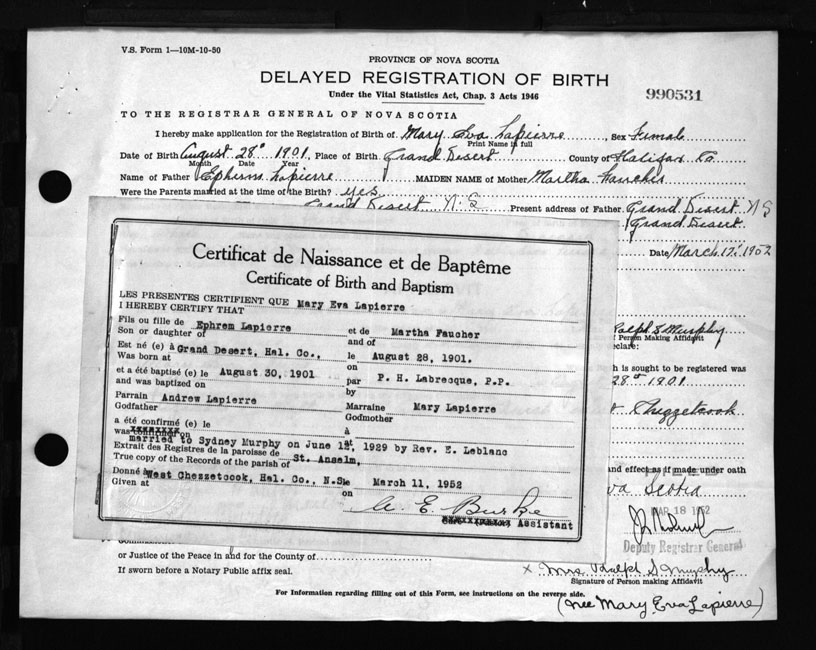 V.S. Form 1—10M-10-50
PROVINCE OF NOVA SCOTIA
DELAYED REGISTRATION OF BIRTH
Under the Vital Statistics Act, Chap. 3 Acts 1946
990531
TO THE REGISTRAR GENERAL OF NOVA SCOTIA
I hereby make application for the Registration of Birth of Mary Eva Lapierre, Sex Female
Print Name in full
Date of Birth August 28" 1901 Place of Birth Grand Desert County of Halifax Co
Month Date Year
Name of Father Ephrem Lapierre MAIDEN NAME of Mother Martha Faucher
Were the Parents married at the time of the Birth? yes
Grand Desert N.S Present address of Father Grand Desert N S
Grand Desert
Date March 17, 1952
Certificat de Naissance et de Baptême
Certificate of Birth and Baptism
LES PRESENTES CERTIFIENT QUE Mary Eva Lapierre
I HEREBY CERTIFY THAT
Fils ou fille de Ephrem Lapierre et de Martha Faucher
Son or daughter of and of
Est né (e) à Grand Desert, Hal. Co., le August 28, 1901.
Was born at on
et a été baptisé (e) le August 30, 1901 par P. H. Labrecque, P.P.
and was baptized on by
Parrain Andrew Lapierre Marraine Mary Lapierre
Godfather Godmother
a été confirmé (e) le à
was confirmed on at
married to Sydney Murphy on June 12, 1929 by Rev. E. Leblanc
Extrait des Registres de la paroisse de St. Anselm,
True copy of the Records of the parish of
Donné à West Chezzetcook, Hal. Co., N.S. le March 11, 1952
Given at on
A. E. Burke
Assistant
Ralph S Murphy
of Person Making Affidavit
eclare:
h is sought to be registered was
28" 1901
Chezzetcook
and effect as if made under oath
va Scotia
MAR 18 1952
Deputy Registrar General
or Justice of the Peace in and for the County of
If sworn before a Notary Public affix seal.
x Mrs Ralph S Murphy
Signature of Person making Affidavit
For Information regarding filling out of this Form, see instructions on the reverse side.
(nee Mary Eva Lapierre)